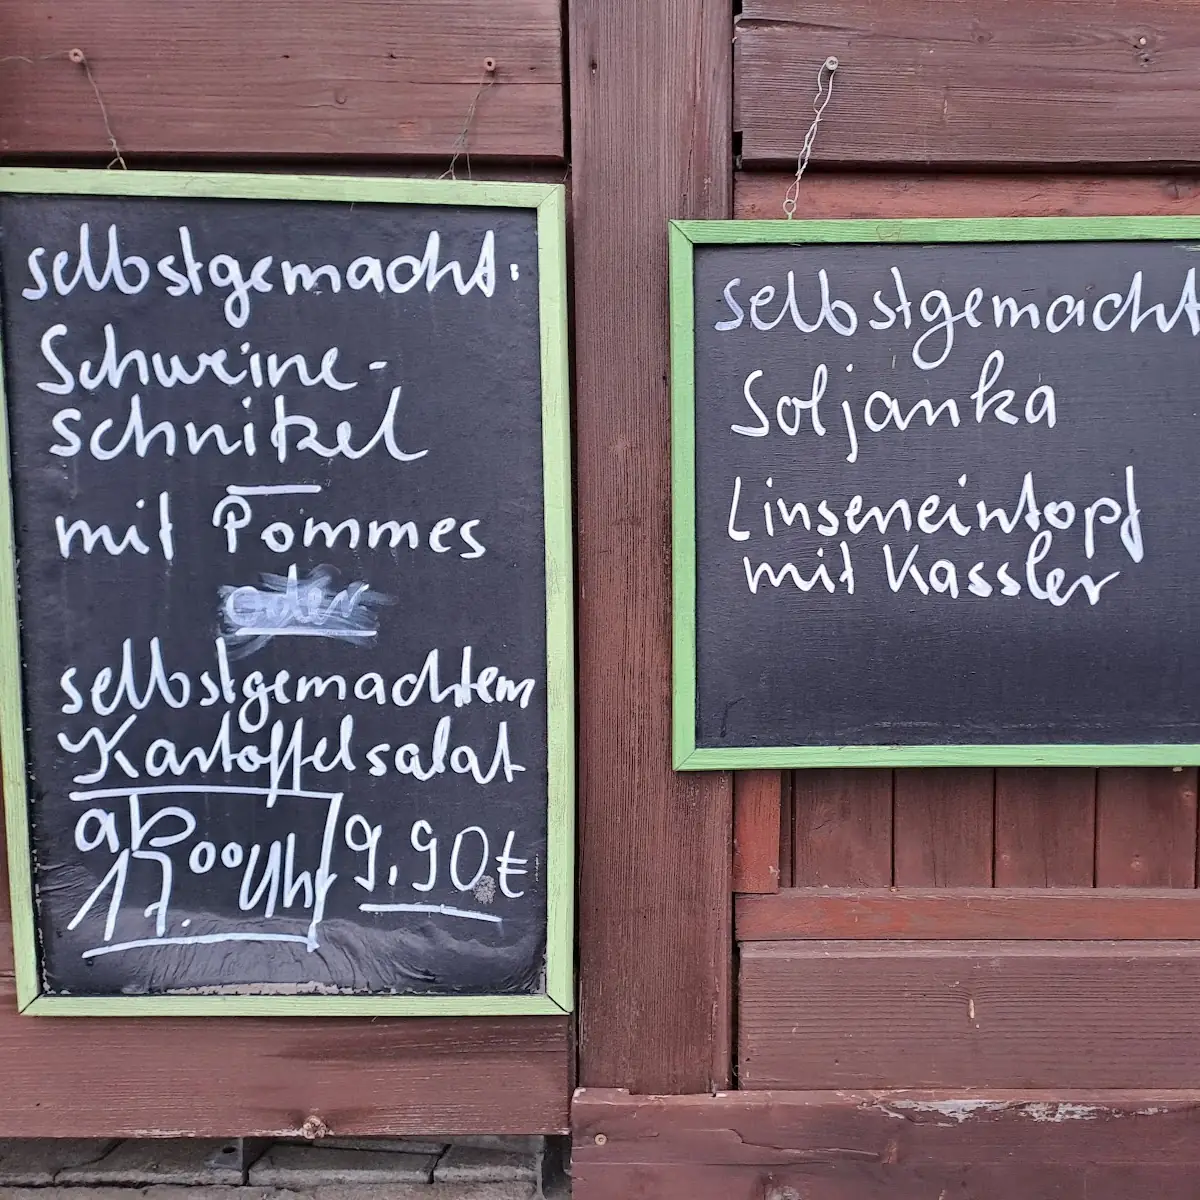 selbstgemacht:
Schweine-
schnitzel
mit Pommes
oder
selbstgemachtem
Kartoffelsalat
ab
17.00 Uhr 9.90€
selbstgemacht
Soljanka
Linseneintopf
mit Kassler